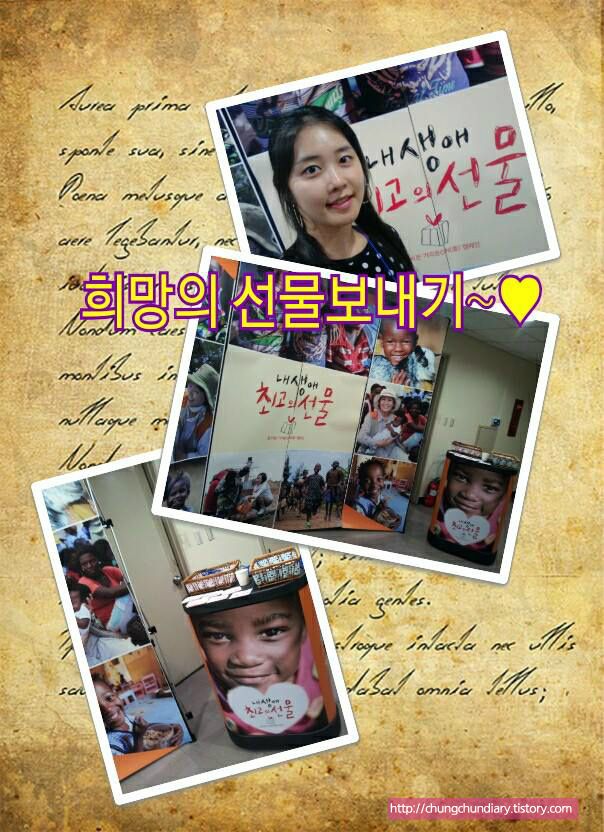 Aurea prima
sponte sua, sine
Poena metusque
aere legebantur, nec
내 생애
최고의 선물
희망의 선물보내기~♥
내 생애
최고의 선물
montibus in
nullaque m
내 생애
최고의 선물
gentes.
intacta nec ullis
dabat omnia tellus;
내 생애
최고의 선물
http://chungchundiary.tistory.com